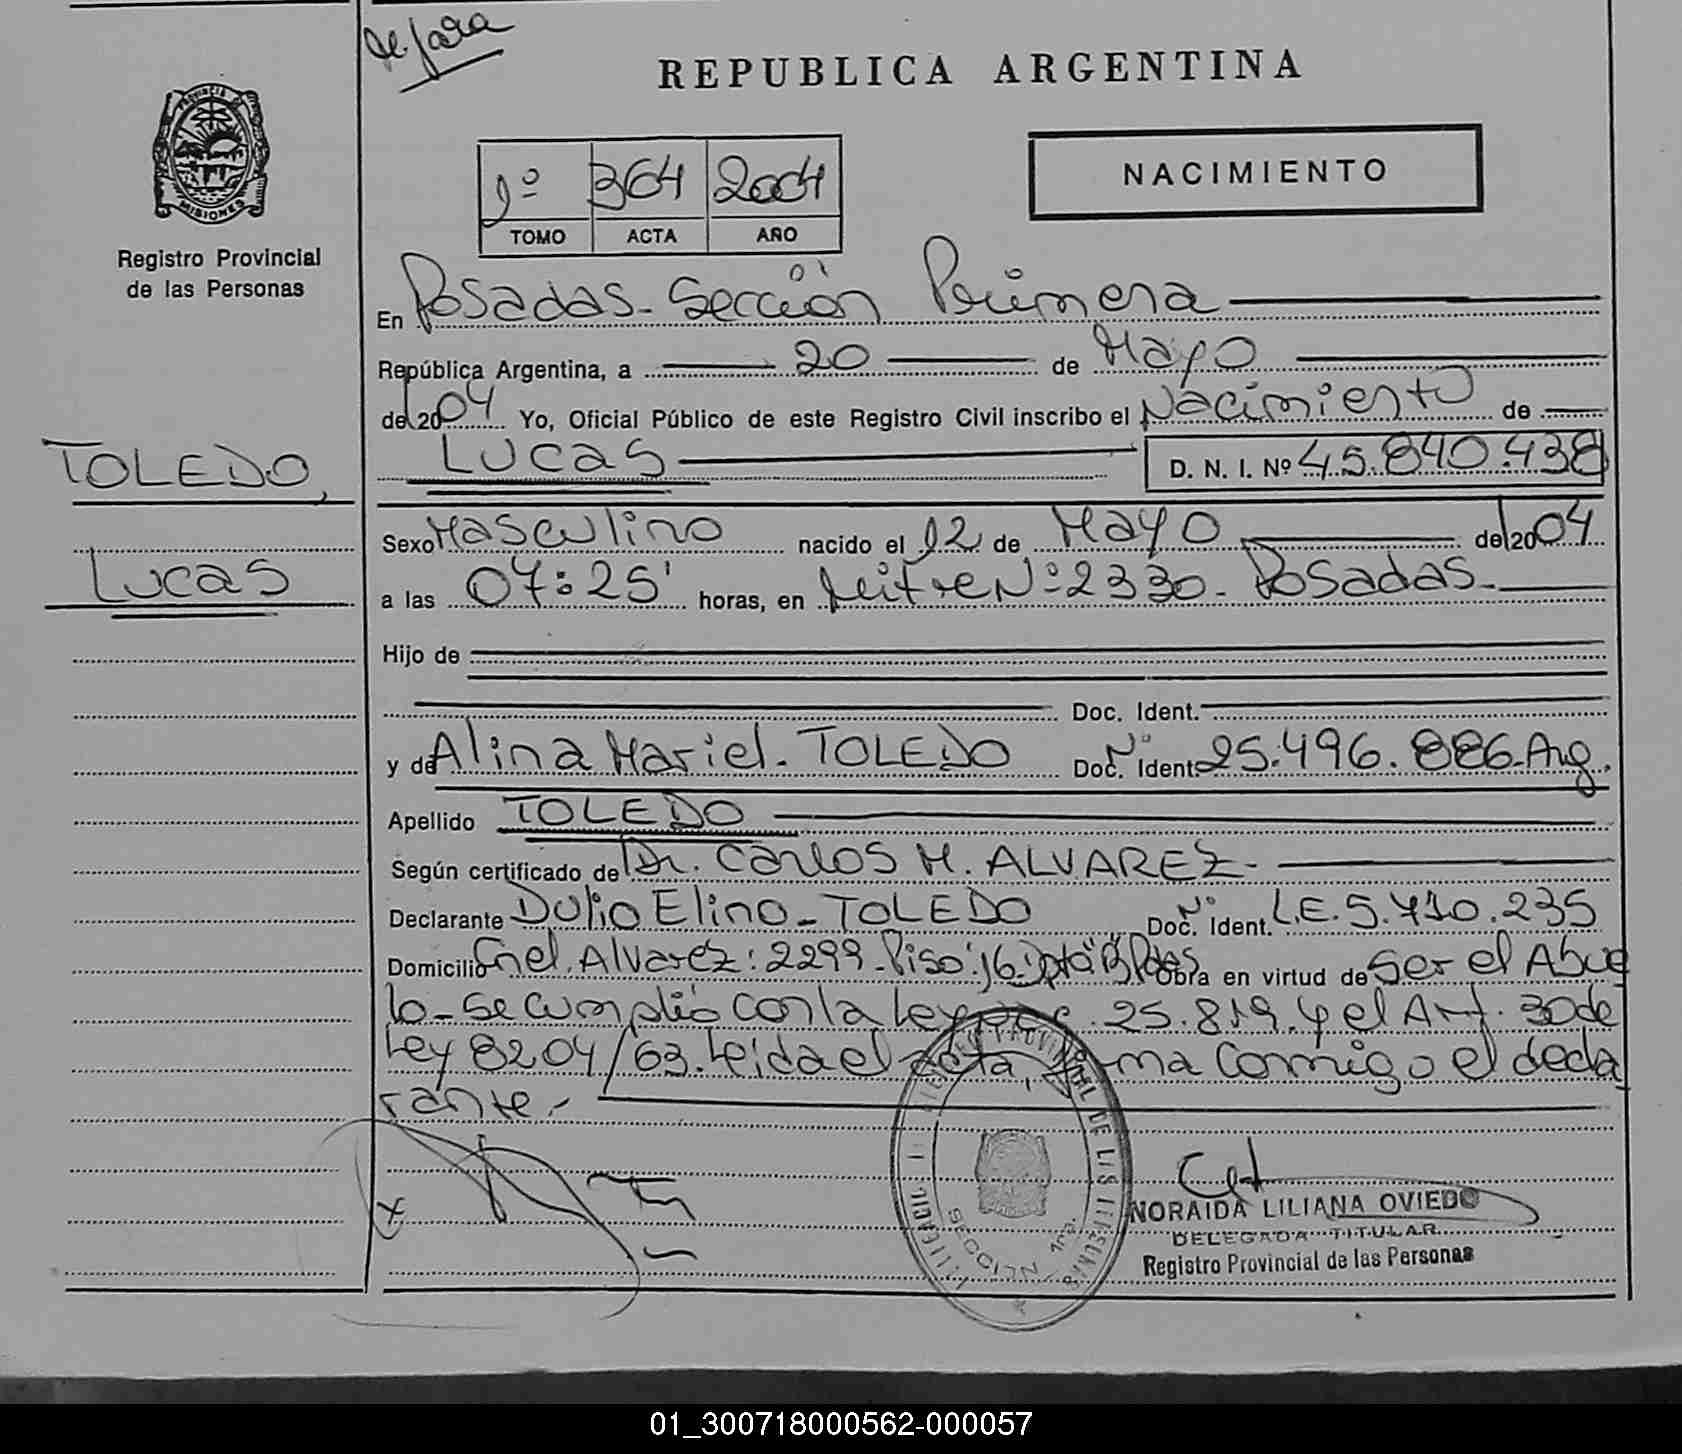 REPUBLICA ARGENTINA
PROVINCIA DE
MISIONES
Registro Provincial
de las Personas
1º 364 2004
TOMO ACTA AÑO
NACIMIENTO
En Posadas - Sección Primera
República Argentina, a 20 de Mayo
del 2004 Yo, Oficial Público de este Registro Civil inscribo el Nacimiento de
TOLEDO,
Lucas
LUCAS D. N. I. Nº 45.840.438
Sexo Masculino nacido el 12 de Mayo del 2004
a las 07:25' horas, en Mitre Nº 2330 - Posadas -
Hijo de
Doc. Ident.
y de Alina Mariel - TOLEDO Doc. Nº Ident. 25.496.886 - Arg.
Apellido TOLEDO
Según certificado de Dr. Carlos M. ALVAREZ -
Declarante Dulio Elino - TOLEDO Doc. Nº Ident. L.E. 5.710.235
Domicilio Cnel. Alvarez: 2299 - Piso: 6 Dpto "B" Pdas Obra en virtud de Ser el Abue
lo - se cumplió con la Ley 25.819. y el Art. 30 de
Ley 8204/63. Leida el acta, firma conmigo el decla
rante.-
NORAIDA LILIANA OVIEDO
DELEGADA TITULAR
Registro Provincial de las Personas
PROVINCIAL DE LAS PERSONAS
SECCION 1ra.
01_300718000562-000057